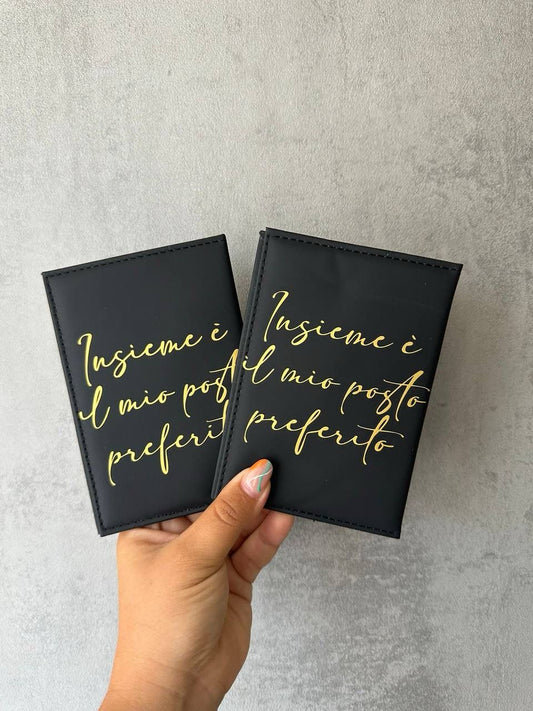 Insieme è
il mio post
preferit
Insieme è
il mio posto
preferito